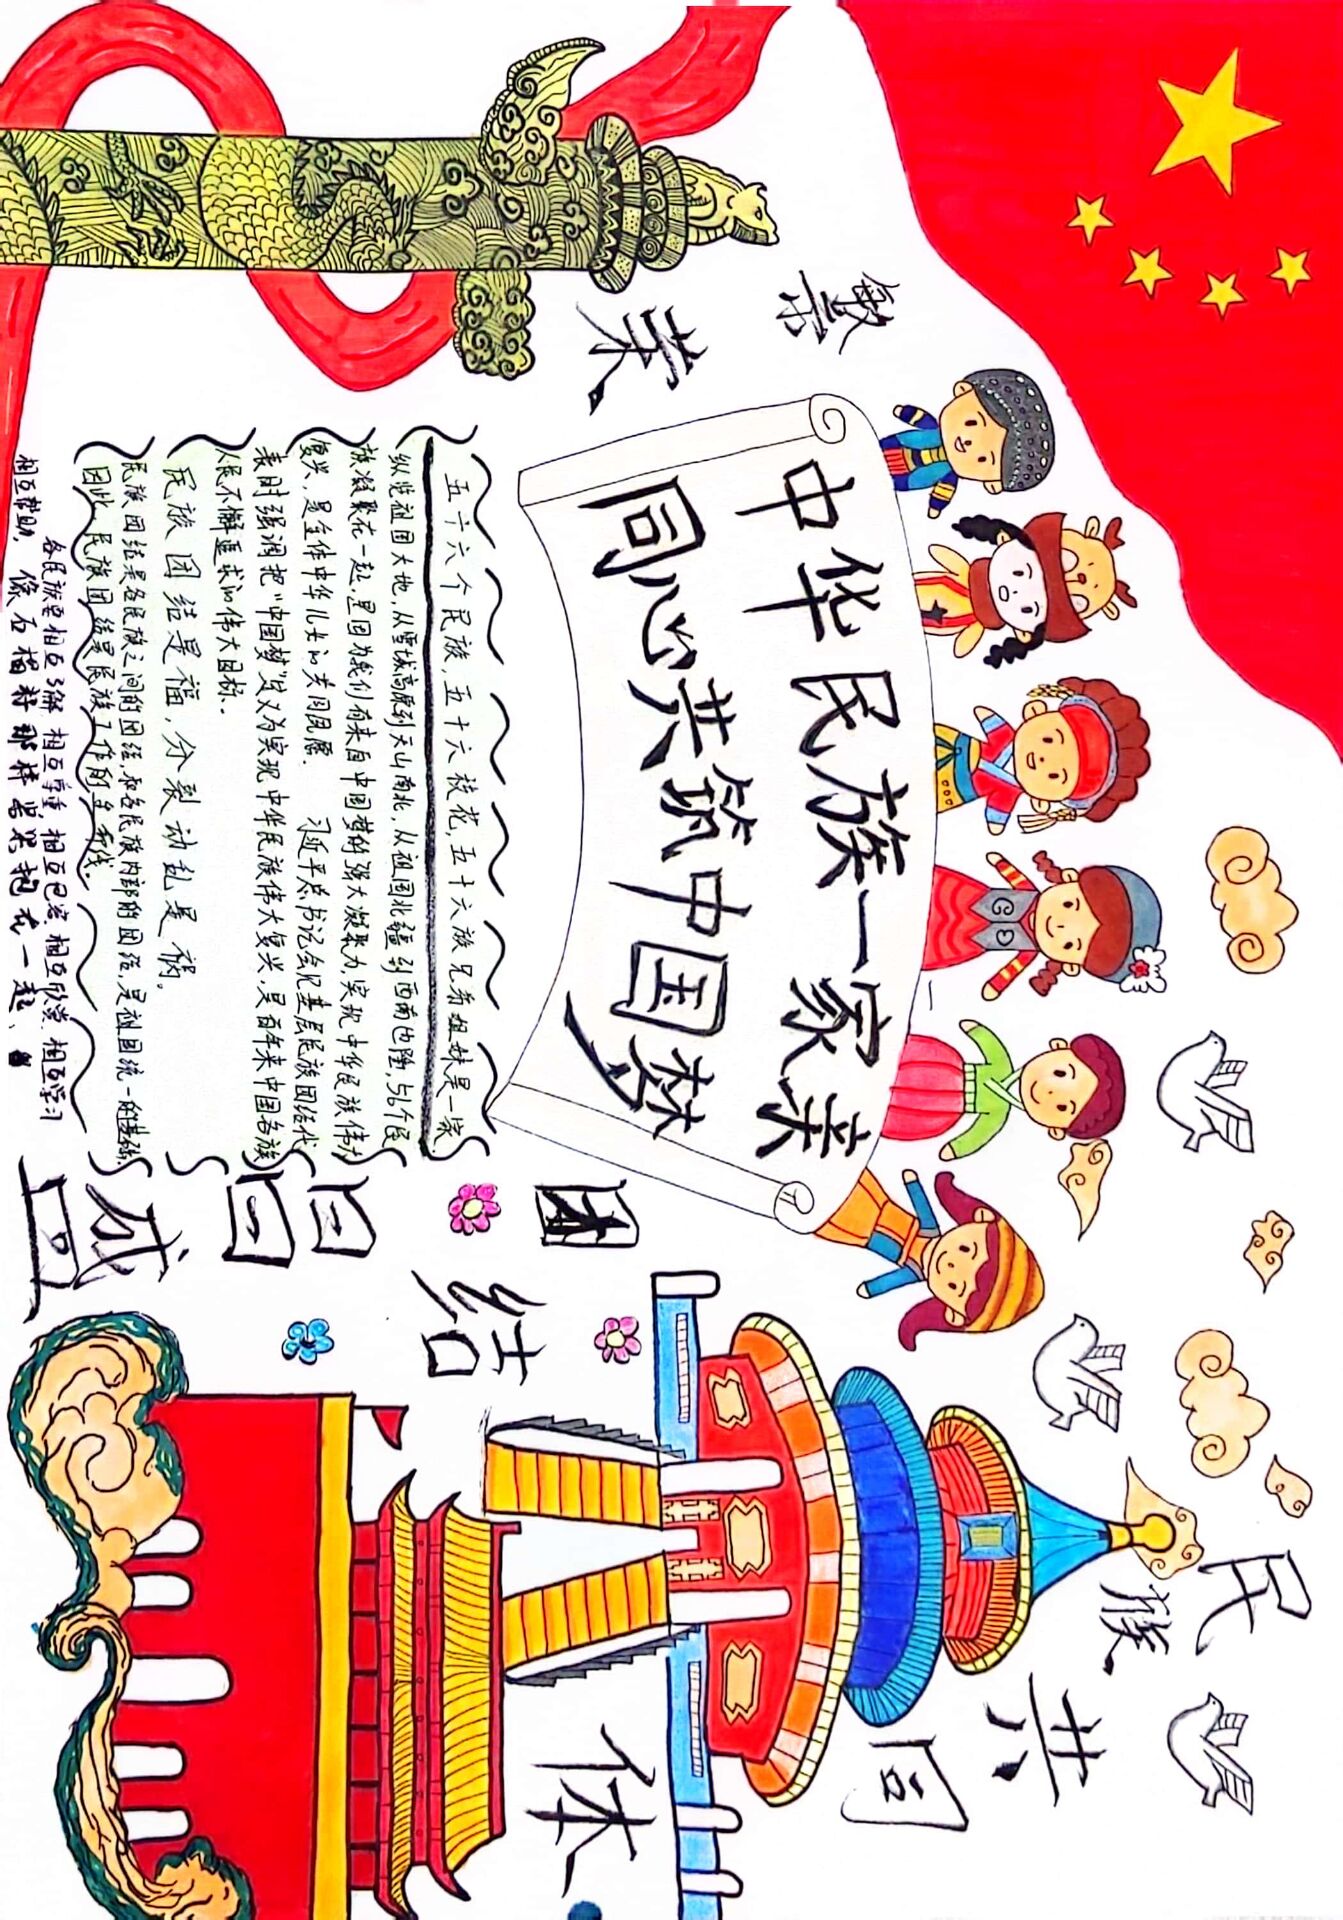 繁荣
中华民族一家亲
同心共筑中国梦
团结
昌盛
民族共同体
五十六个民族,五十六枝花,五十六族兄弟姐妹是一家
纵览祖国大地,从雪域高原到天山南北,从祖国北疆到西南边陲,56个民
族凝聚在一起,是因为我们有来自中国梦的强大凝聚力,实现中华民族伟大
复兴、是全体中华儿女的共同愿. 习近平总书记会见基层民族团结代
表时强调把“中国梦”定义为实现中华民族伟大复兴,是百年来中国各族
人民不懈追求的伟大目标.
民族团结是福,分裂动乱是祸。
民族团结是各民族之间的团结和各民族内部的团结,是祖国统一的基础.
因此,民族团结是民族工作的生命线。
各民族要相互了解 相互尊重,相互包容 相互欣赏 相互学习
相互帮助,像石榴籽那样紧紧抱在一起、